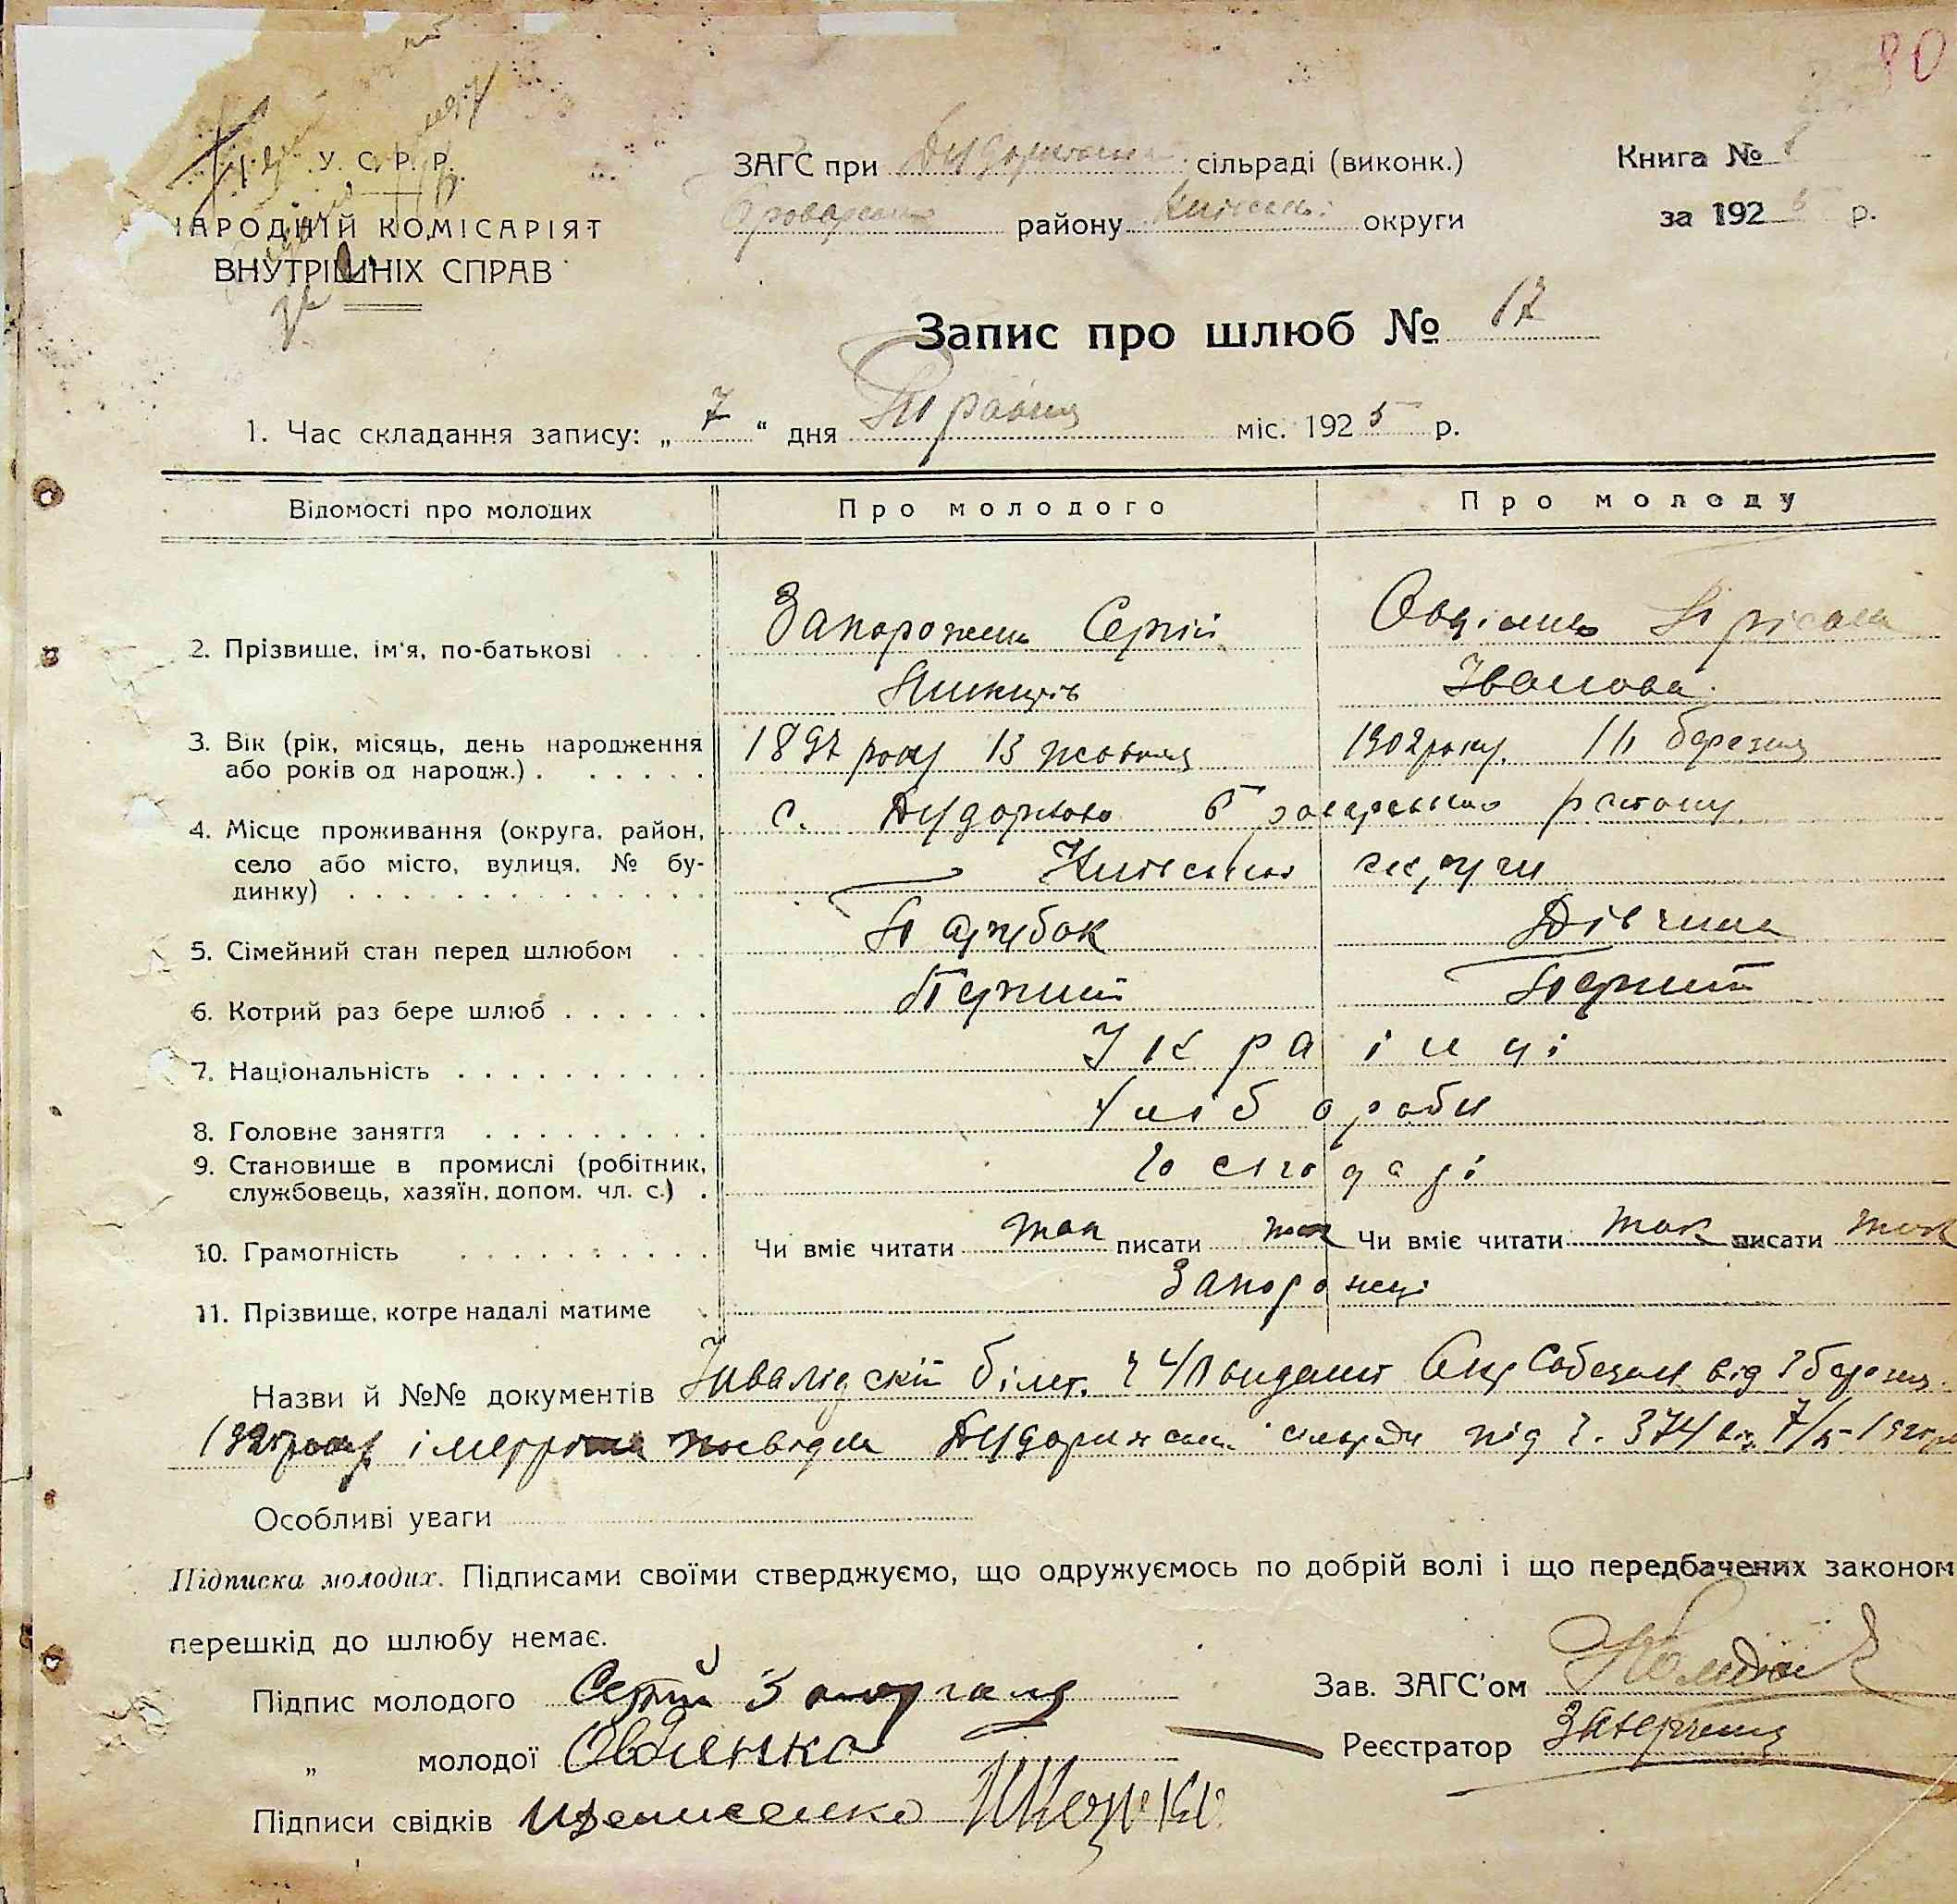 90
У. С. Р. Р.
НАРОДНІЙ КОМІСАРІЯТ
ВНУТРІШНІХ СПРАВ
ЗАГС при сільраді (виконк.)
Броварського району Київської округи
Книга №
за 1925 р.
Запис про шлюб № 17
1. Час складання запису: „ 7 “ дня Травня міс. 1925 р.
Відомості про молодих Про молодого Про молоду
2. Прізвище, ім'я, по-батькові Запорожець Сергій Овдієнко
Іванова
3. Вік (рік, місяць, день народження 1897 року 13 жовтня 1902 року березня
або років од народж.)
4. Місце проживання (округа, район, с. Броварського району
село або місто, вулиця, № бу- Київської округи
динку)
5. Сімейний стан перед шлюбом Парубок Дівчина
6. Котрий раз бере шлюб Перший Перший
7. Національність Українці
8. Головне заняття Хлібороби
9. Становище в промислі (робітник, Господарі
службовець, хазяїн, допом. чл. с.)
10. Грамотність Чи вміє читати так писати так Чи вміє читати так писати так
11. Прізвище, котре надалі матиме Запорожці
Назви й №№ документів Інвалідский білет виданий Собезом від березня
1925 року і посвідка сільради під ч. 374 від 7/5-1925 р.
Особливі уваги
Підписка молодих. Підписами своїми стверджуємо, що одружуємось по добрій волі і що передбачених законом
перешкід до шлюбу немає.
Підпис молодого Сергій
„ молодої Овдиенко
Підписи свідків
Зав. ЗАГС'ом
Реєстратор